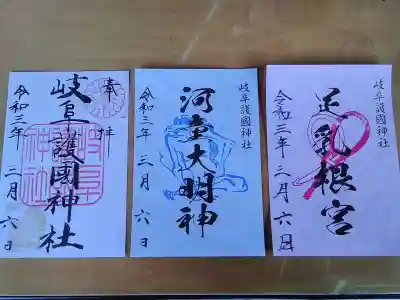 奉拝
岐阜護國神社
令和三年三月六日
岐阜護國神社
河童大明神
令和三年三月六日
岐阜護國神社
足乳根宮
令和三年三月六日